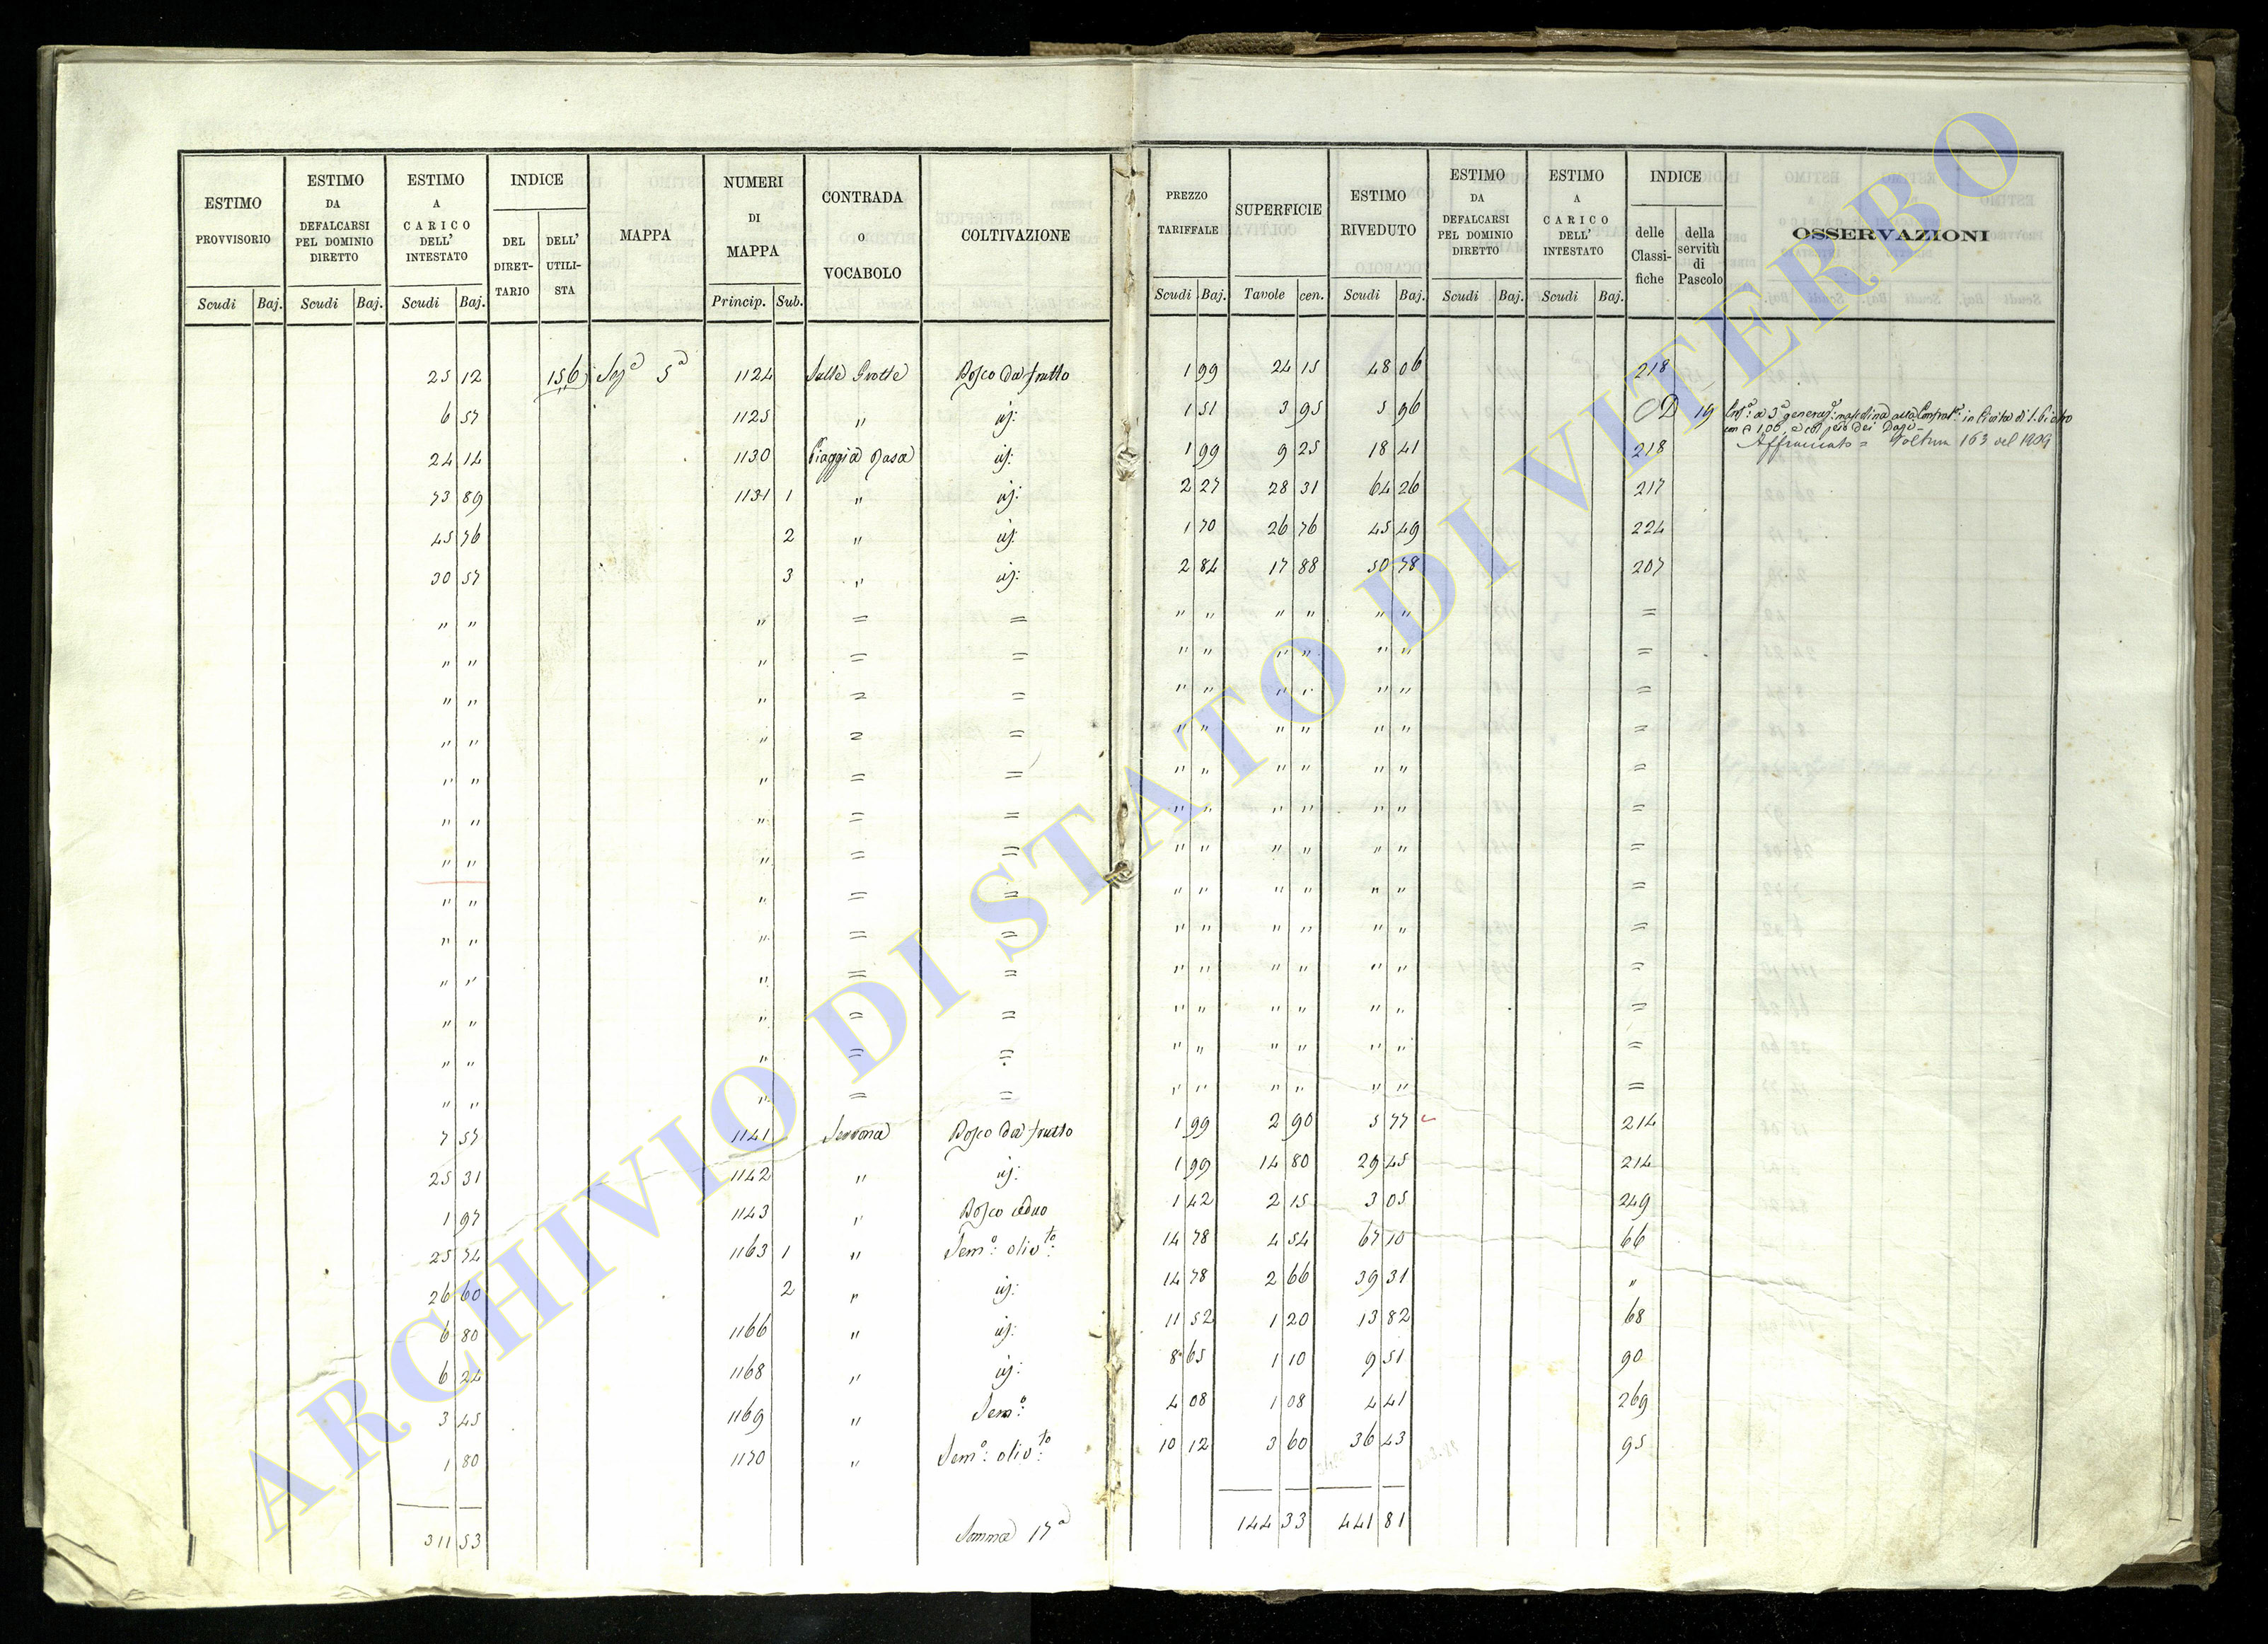 ESTIMO PROVVISORIO | ESTIMO DA DEFALCARSI PEL DOMINIO DIRETTO | ESTIMO A CARICO DELL' INTESTATO | INDICE | MAPPA | NUMERI DI MAPPA | CONTRADA O VOCABOLO | COLTIVAZIONE | PREZZO TARIFFALE | SUPERFICIE | ESTIMO RIVEDUTO | ESTIMO DA DEFALCARSI PEL DOMINIO DIRETTO | ESTIMO A CARICO DELL' INTESTATO | INDICE | OSSERVAZIONI
DEL DIRET-TARIO | DELL' UTILI-STA | delle Classi-fiche | della servitù di Pascolo
Scudi | Baj. | Scudi | Baj. | Scudi | Baj. | Princip. | Sub. | Scudi | Baj. | Tavole | cen. | Scudi | Baj. | Scudi | Baj. | Scudi | Baj.
25 12 | 156 | Sez.e 5a | 1124 | Sulle Grotte | Bosco da frutto | 1 99 | 24 15 | 48 06 | 218
6 57 | 1125 | " | id: | 1 51 | 3 95 | 5 96 | D | 19
24 14 | 1130 | Piaggia Rasa | id: | 1 99 | 9 25 | 18 41 | 218 | Affrancato = Voltura 163 del 1909
73 89 | 1131 | 1 | " | id: | 2 27 | 28 31 | 64 26 | 217
45 76 | 2 | " | id: | 1 70 | 26 76 | 45 49 | 224
30 57 | 3 | " | id: | 2 84 | 17 88 | 50 78 | 207
" " | " | = | = | " " | " " | " " | =
" " | " | = | = | " " | " " | " " | =
" " | " | = | = | " " | " " | " " | =
" " | " | = | = | " " | " " | " " | =
" " | " | = | = | " " | " " | " " | =
" " | " | = | = | " " | " " | " " | =
" " | " | = | = | " " | " " | " " | =
" " | " | = | = | " " | " " | " " | =
" " | " | = | = | " " | " " | " " | =
" " | " | = | = | " " | " " | " " | =
" " | " | = | = | " " | " " | " " | =
" " | " | = | = | " " | " " | " " | =
" " | " | = | = | " " | " " | " " | =
7 57 | 1141 | Serrona | Bosco da frutto | 1 99 | 2 90 | 5 77 | 214
25 31 | 1142 | " | id: | 1 99 | 14 80 | 29 45 | 214
1 97 | 1143 | " | Bosco ceduo | 1 42 | 2 15 | 3 05 | 249
25 74 | 1163 | 1 | " | Sem.o: oliv.to: | 14 78 | 4 54 | 67 10 | 66
26 60 | 2 | " | id: | 14 78 | 2 66 | 39 31 | "
6 80 | 1166 | " | id: | 11 52 | 1 20 | 13 82 | 68
6 24 | 1168 | " | id: | 8 65 | 1 10 | 9 51 | 90
3 45 | 1169 | " | Sem.o: | 4 08 | 1 08 | 4 41 | 269
1 80 | 1170 | " | Sem.o: oliv.to: | 10 12 | 3 60 | 36 43 | 95
311 53 | Somma 17a | 144 33 | 441 81
ARCHIVIO DI STATO DI VITERBO